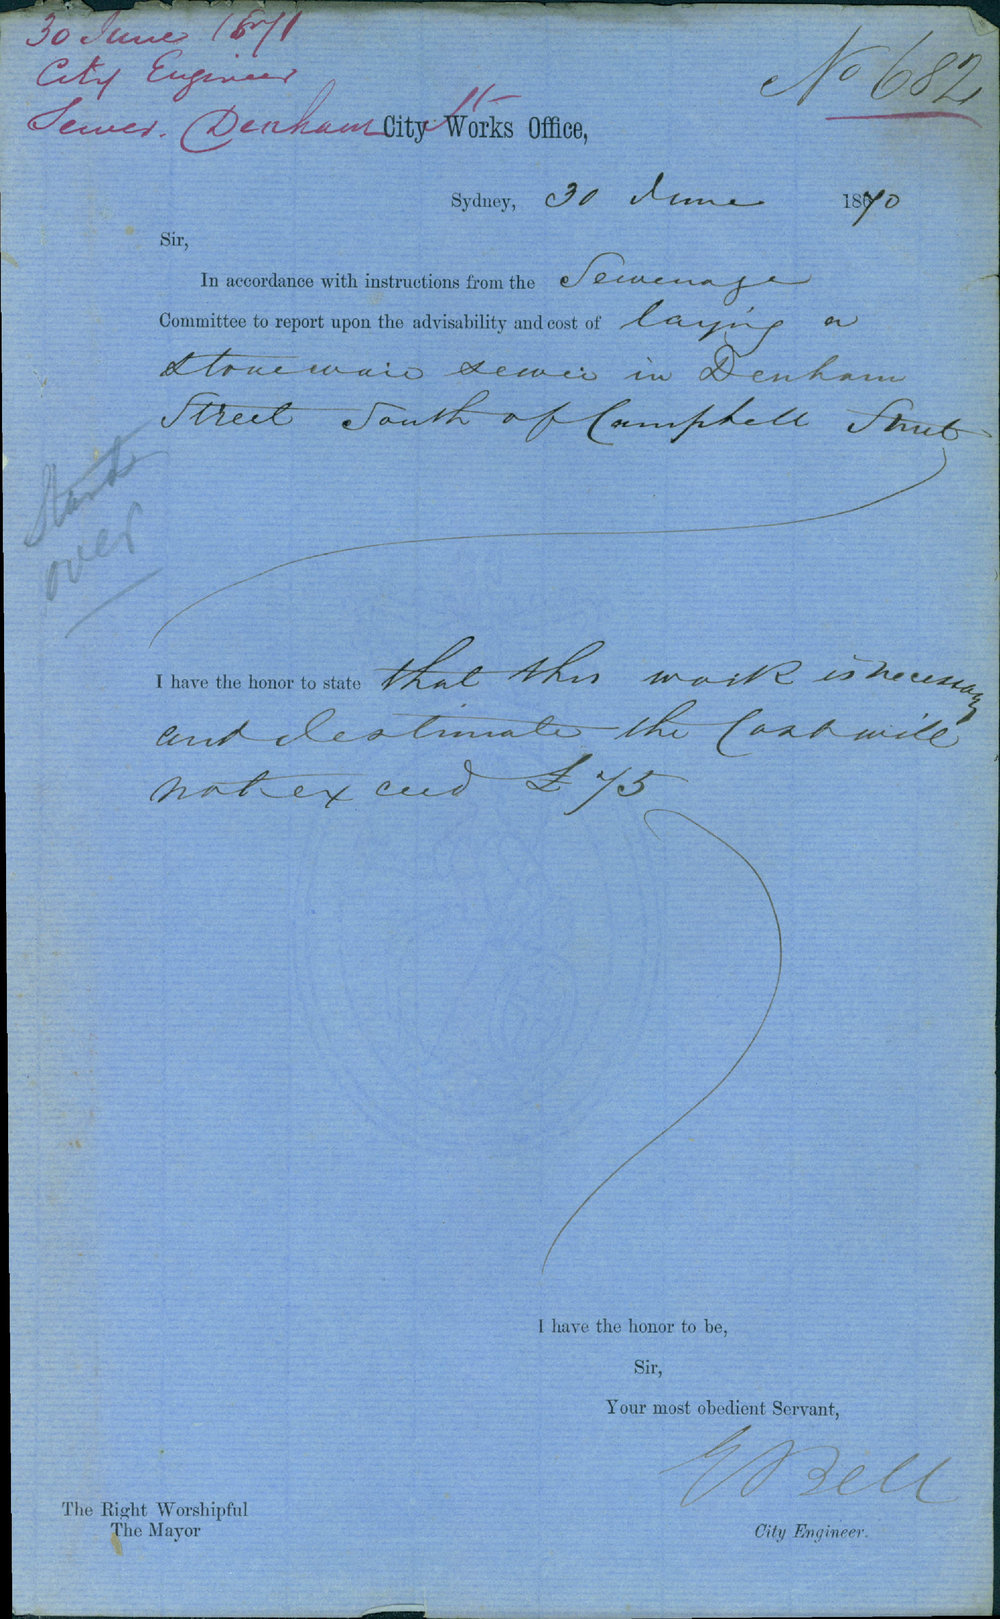 30 June 1871
City Engineer
Sewer. Denham St
No 682
City Works Office,
Sydney, 30 June 1870
Sir,
In accordance with instructions from the Sewerage
Committee to report upon the advisability and cost of laying a
stoneware sewer in Denham
Street South of Campbell Street
Stand
over
I have the honor to state that this work is necessary
and I estimate the Cost will
not exceed £75
I have the honor to be,
Sir,
Your most obedient Servant,
E Bell
City Engineer.
The Right Worshipful
The Mayor